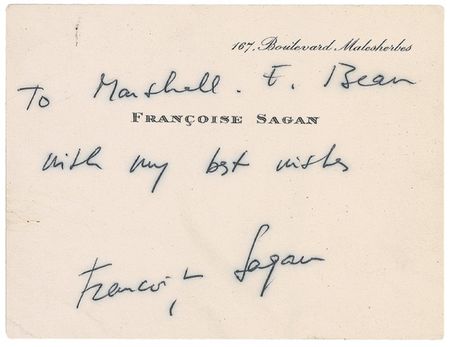 167, Boulevard Malesherbes
To Marshell. E. Bean
FRANÇOISE SAGAN
with my best wishes
Françoise Sagan